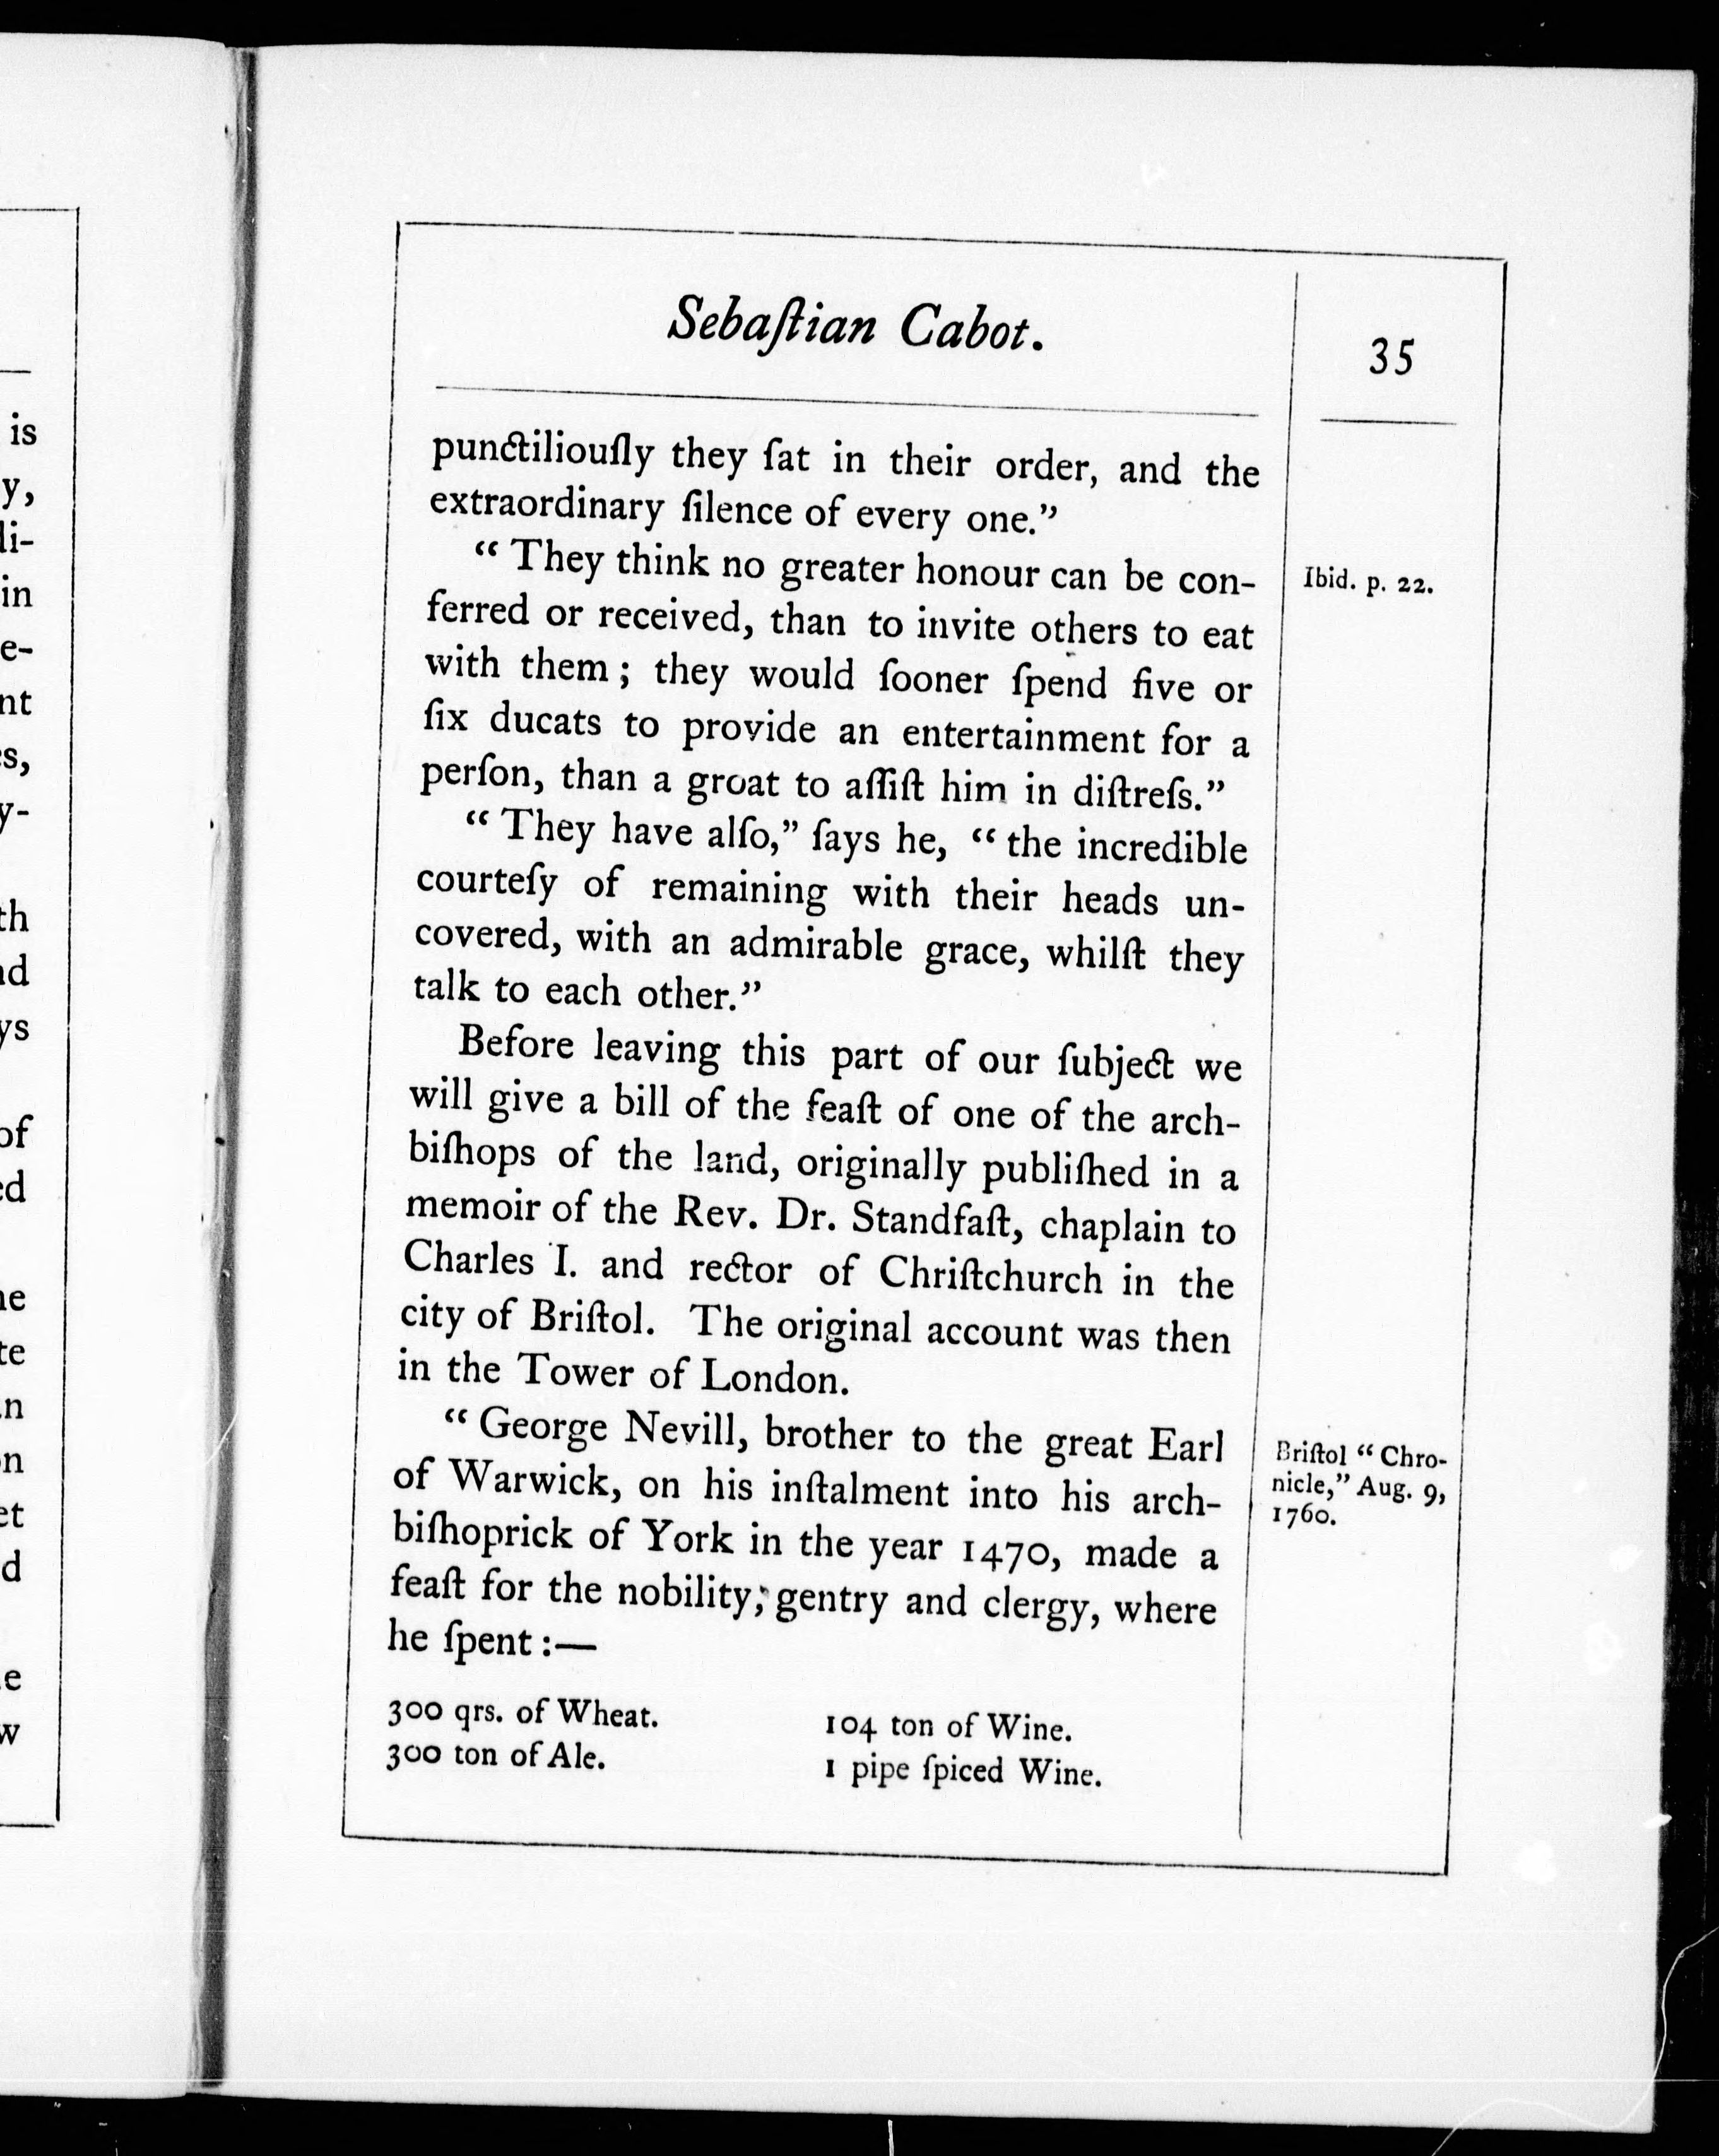 Sebaſtian Cabot.
35
punctiliouſly they ſat in their order, and the
extraordinary ſilence of every one.”
“ They think no greater honour can be con-
ferred or received, than to invite others to eat
with them ; they would ſooner ſpend five or
ſix ducats to provide an entertainment for a
perſon, than a groat to aſſiſt him in diſtreſs.”
“ They have alſo,” ſays he, “ the incredible
courteſy of remaining with their heads un-
covered, with an admirable grace, whilſt they
talk to each other.”
Before leaving this part of our ſubject we
will give a bill of the feaſt of one of the arch-
biſhops of the land, originally publiſhed in a
memoir of the Rev. Dr. Standfaſt, chaplain to
Charles I. and rector of Chriſtchurch in the
city of Briſtol. The original account was then
in the Tower of London.
“ George Nevill, brother to the great Earl
of Warwick, on his inſtalment into his arch-
biſhoprick of York in the year 1470, made a
feaſt for the nobility, gentry and clergy, where
he ſpent :—
300 qrs. of Wheat.
300 ton of Ale.
104 ton of Wine.
1 pipe ſpiced Wine.
Ibid. p. 22.
Briſtol “ Chro-
nicle,” Aug. 9,
1760.
is
y,
li-
in
e-
nt
s,
y-
th
nd
ys
of
ed
ne
te
n
on
et
d
e
w